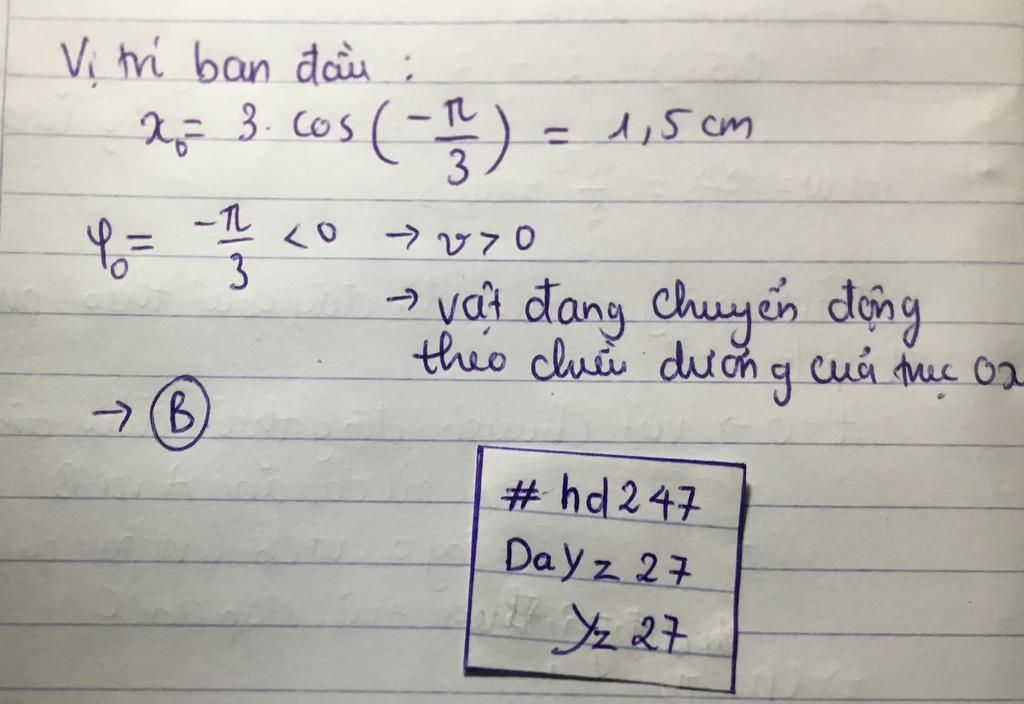 Vị trí ban đầu :
x₀ = 3. cos (-π/3) = 1,5 cm
φ₀ = -π/3 < 0 → v > 0
→ vật đang chuyển động
theo chiều dương của trục Ox
→ B
# hd247
Dayz 27
Yz 27